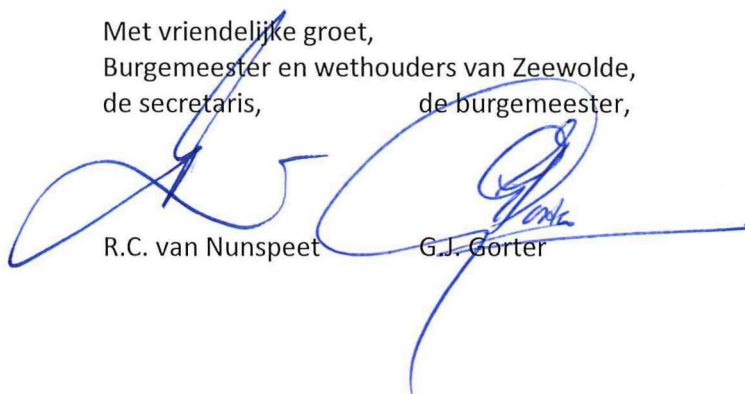 Met vriendelijke groet,
Burgemeester en wethouders van Zeewolde,
de secretaris, de burgemeester,
R.C. van Nunspeet G.J. Gorter